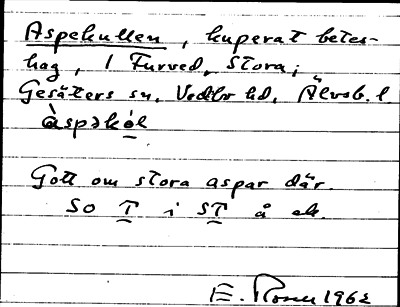 Aspekullen, kuperat betes-
hag, 1 Furved, Stora,
Gesäters sn, Vedbo hd, Älvsb. l
àspəkól
Gott om stora aspar där.
So T i ST å ek.
E. Rosen 1962